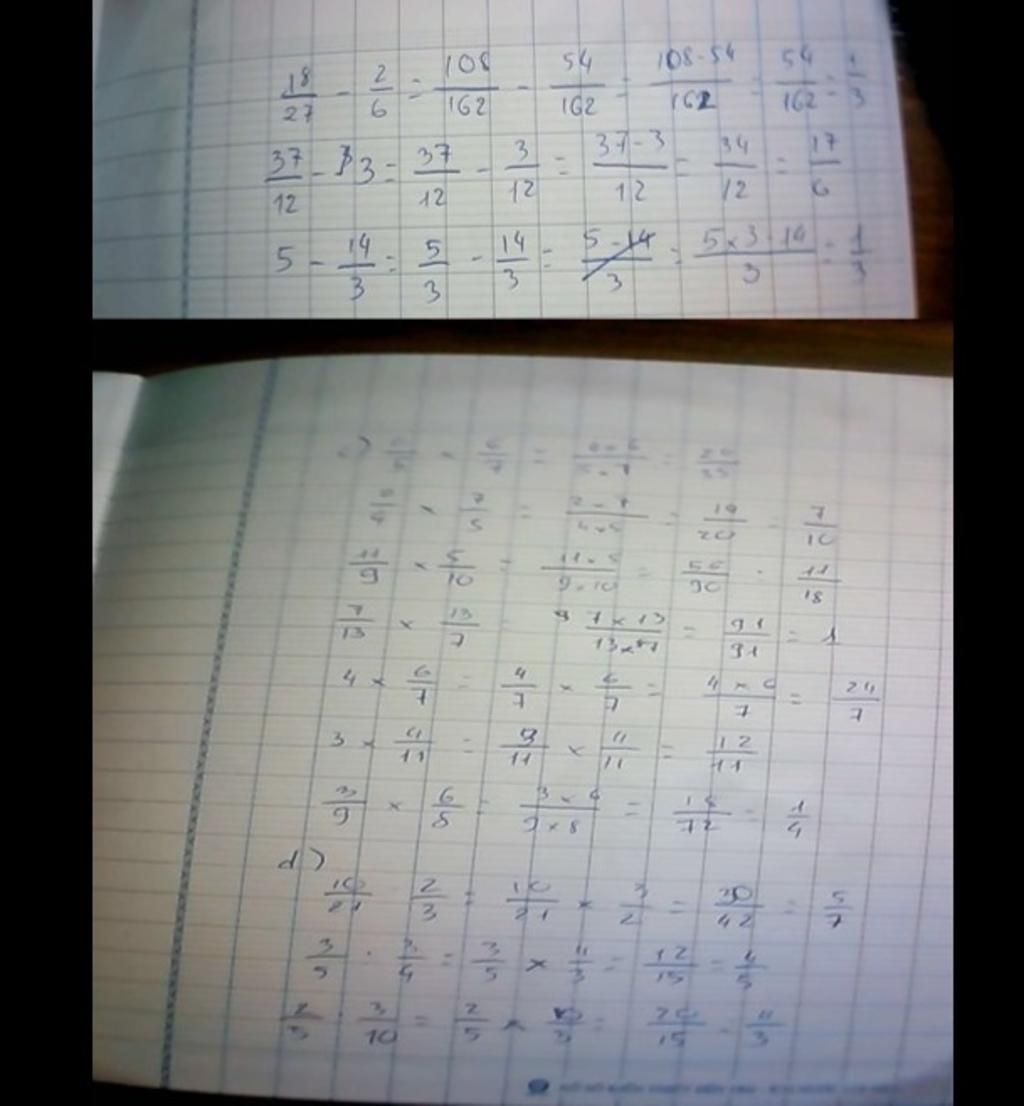 18/27 - 2/6 = 108/162 - 54/162 = 108-54/162 = 54/162 = 1/3
37/12 - 3 = 37/12 - 3/12 = 37-3/12 = 34/12 = 17/6
5 - 14/3 = 5/3 - 14/3 = 5-14/3 = 5×3-14/3 = 1/3
× 7/5 = = /20 = 7/10
11/9 × 5/10 = 11×5/9×10 = 55/90 = 11/18
7/13 × 13/7 = 7×13/13×7 = 91/91 = 1
4 × 6/7 = 4/7 × 6/7 = 4×6/7 = 24/7
3 × 4/11 = 3/11 × 4/11 = 12/11
3/9 × 6/8 = 3×6/9×8 = 18/72 = 1/4
d)
10/21 : 2/3 = 10/21 × 3/2 = 30/42 = 5/7
3/5 : 3/4 = 3/5 × 4/3 = 12/15 = 4/5
2/5 : 3/10 = 2/5 × 10/3 = 20/15 = 4/3